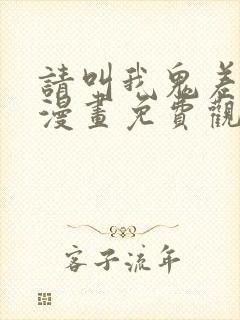 請叫我鬼差
漫畫免費觀
客子流年